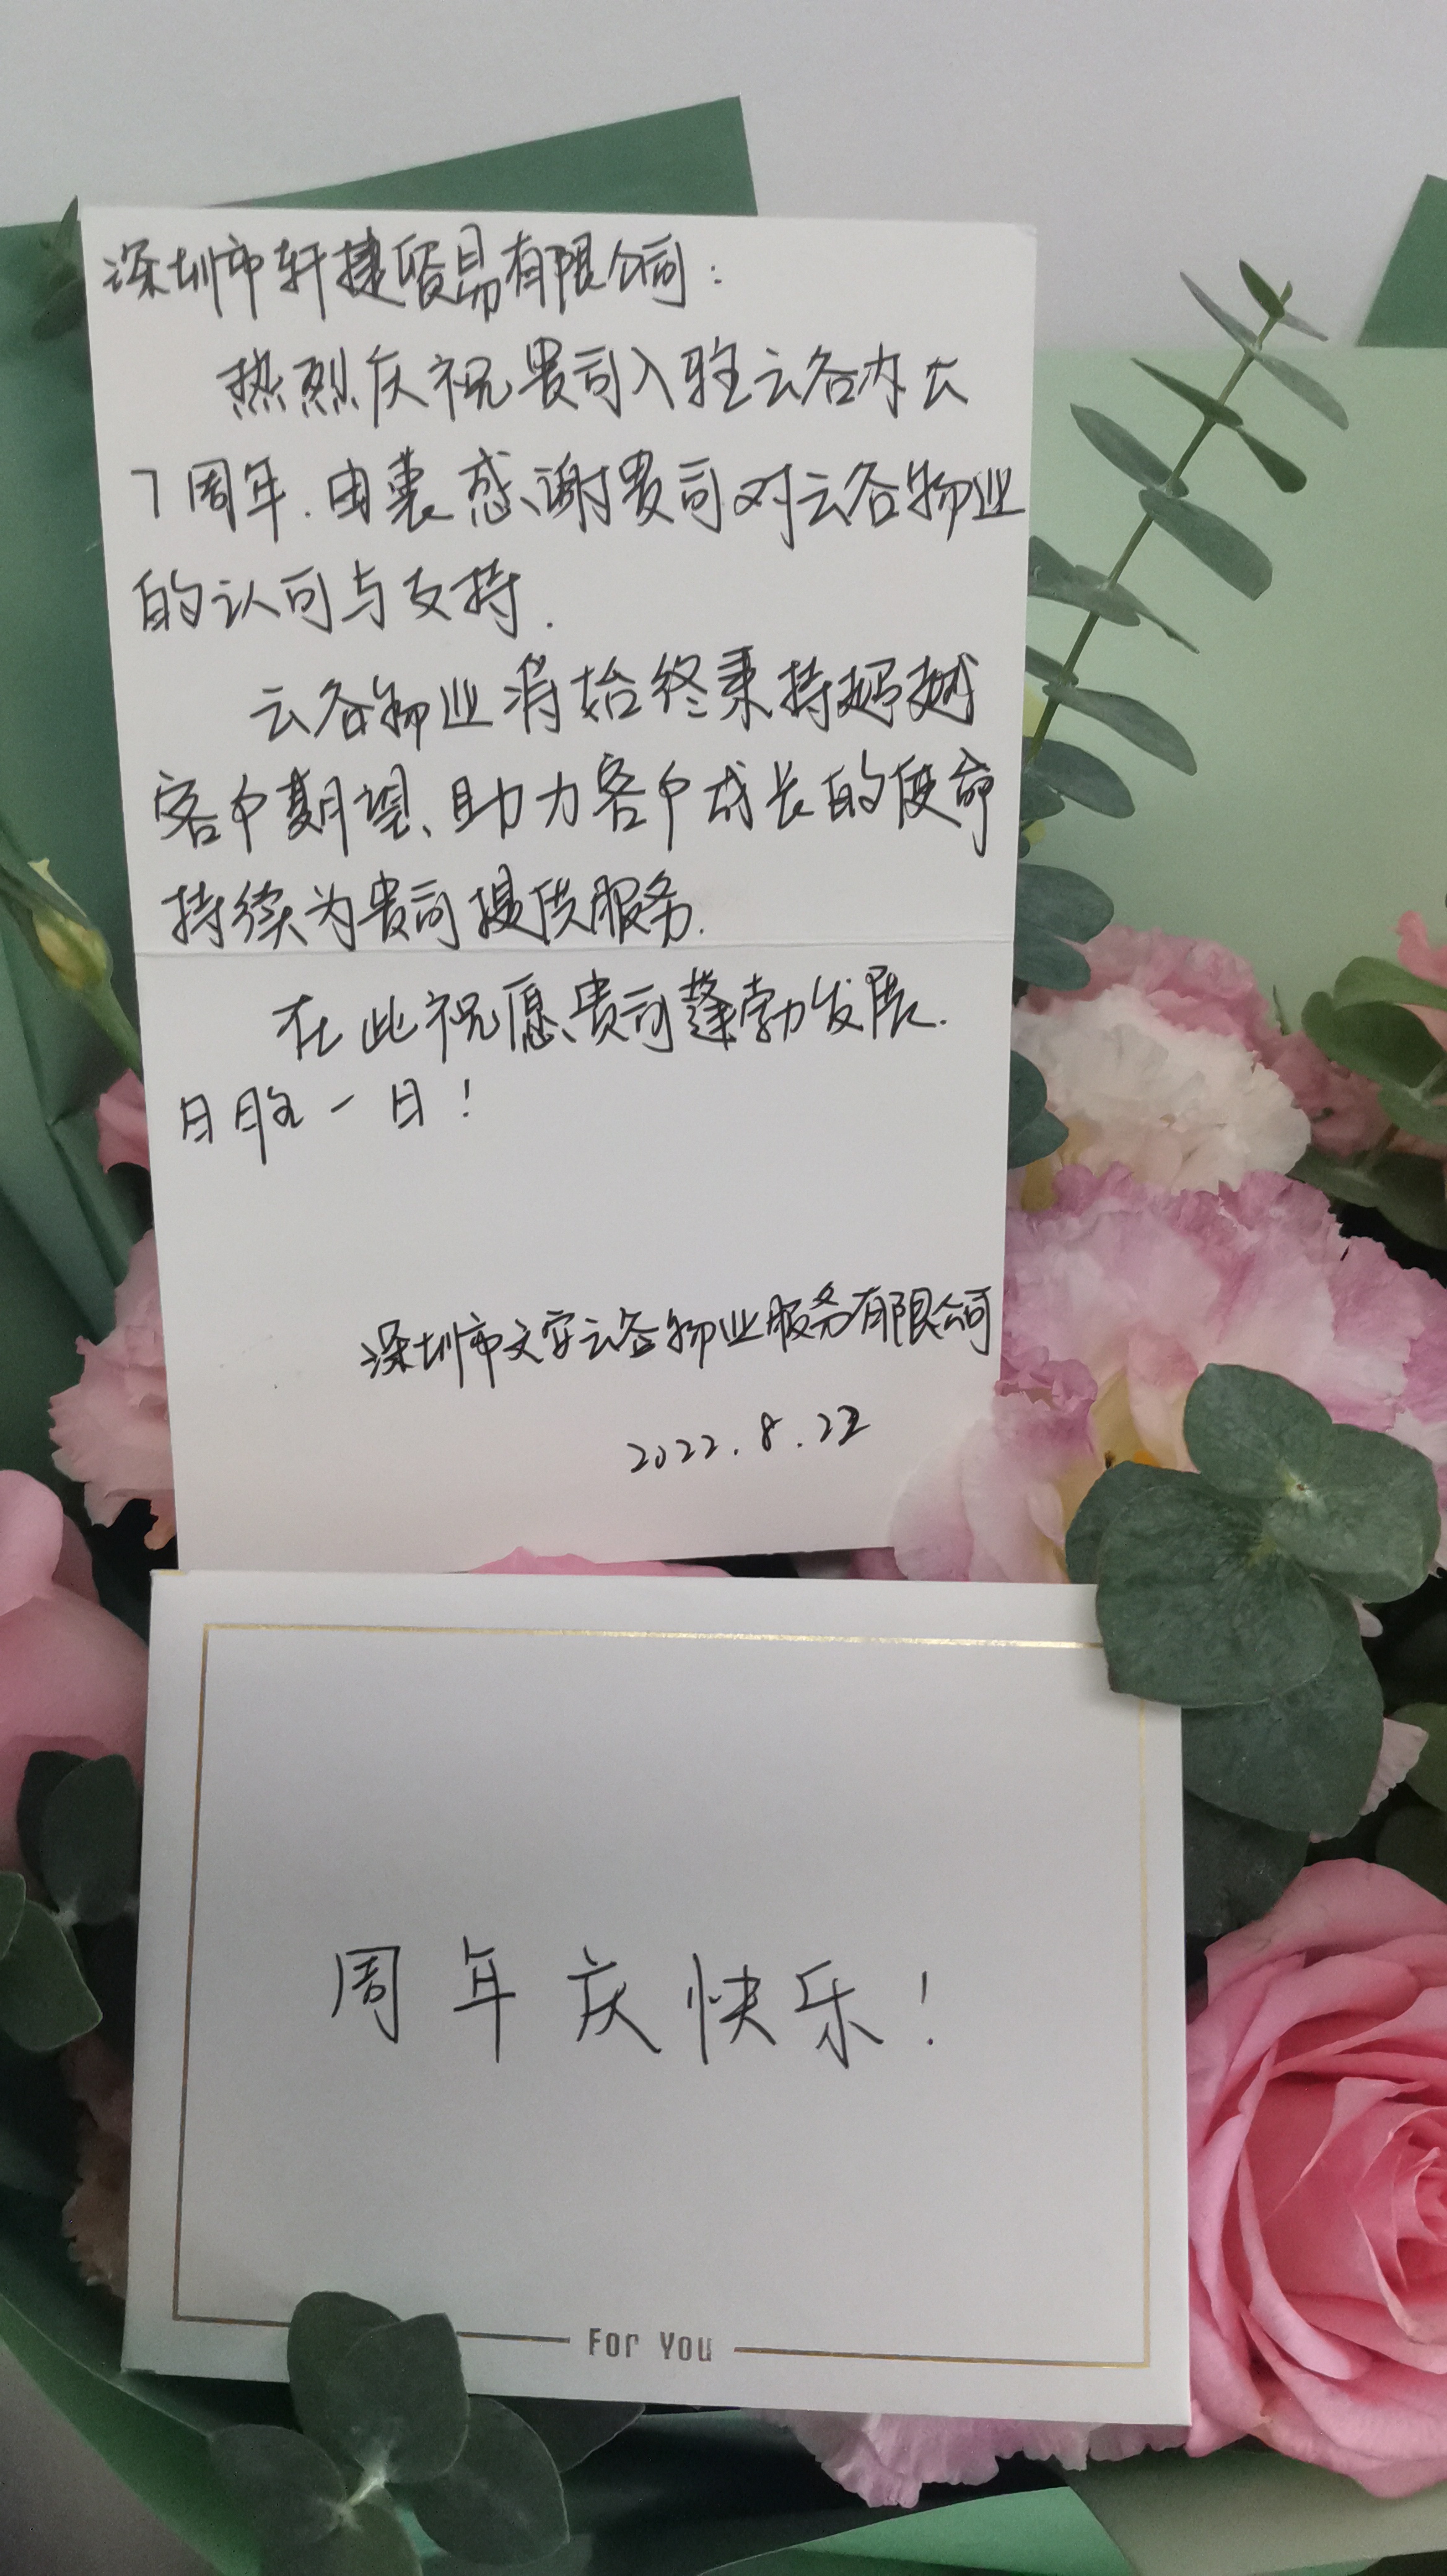 深圳市轩捷贸易有限公司：
热烈庆祝贵司入驻云谷
7周年.由衷感谢贵司对云谷物业
的认可与支持.
云谷物业将始终秉持超越
客户期望、助力客户成长的使命
持续为贵司提供服务.
在此祝愿贵司蓬勃发展.
日胜一日！
深圳市文安云谷物业服务有限公司
2022.8.22
周年庆快乐！
For You